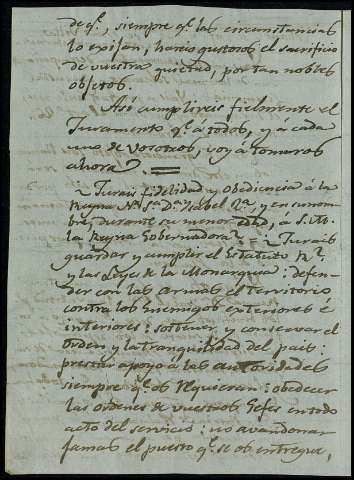 de qᵉ, siempre qᵉ las circunstancias
lo exijan, hareis gustosos el sacrificio
de vuestra quietud, por tan nobles
objetos.
Asi cumplireis fielmente el
Juramento qᵉ a todos, y á cada
uno de vosotros, voy á tomaros
ahora. =
Jurais fidelidad y obediencia á la
Reyna Nª. Sª. Dª. Isabel 2ª., y en su nom-
bre, durante su menor edad, á S. M.
la Reyna Gobernadora? = Jurais
guardar y cumplir el Estatuto Rˡ.
y las Leyes de la Monarquia: defen-
der con las armas el territorio
contra los Enemigos exteriores é
interiores: sostener y conservar el
orden y la tranquilidad del pais:
prestar apoyo á las autoridades
siempre qᵉ os requieran: obedecer
las ordenes de vuestros Gefes en todo
acto del servicio: no abandonar
jamas el puesto qᵉ se os entregue,